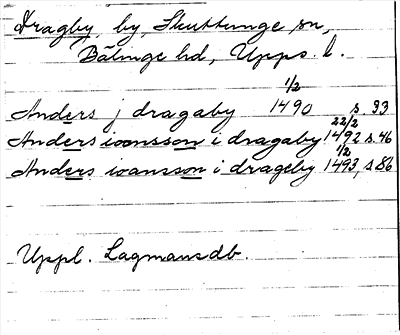 Dragby, by, Skuttunge sn,
Bälinge hd, Upps. l.
Anders j dragaby 1/2 1490 s. 33
Anders ioonsson i dragaby 22/2 1492 s. 46
Anders ioansson i drageby 1/2 1493, s. 86
Uppl. Lagmansdb.